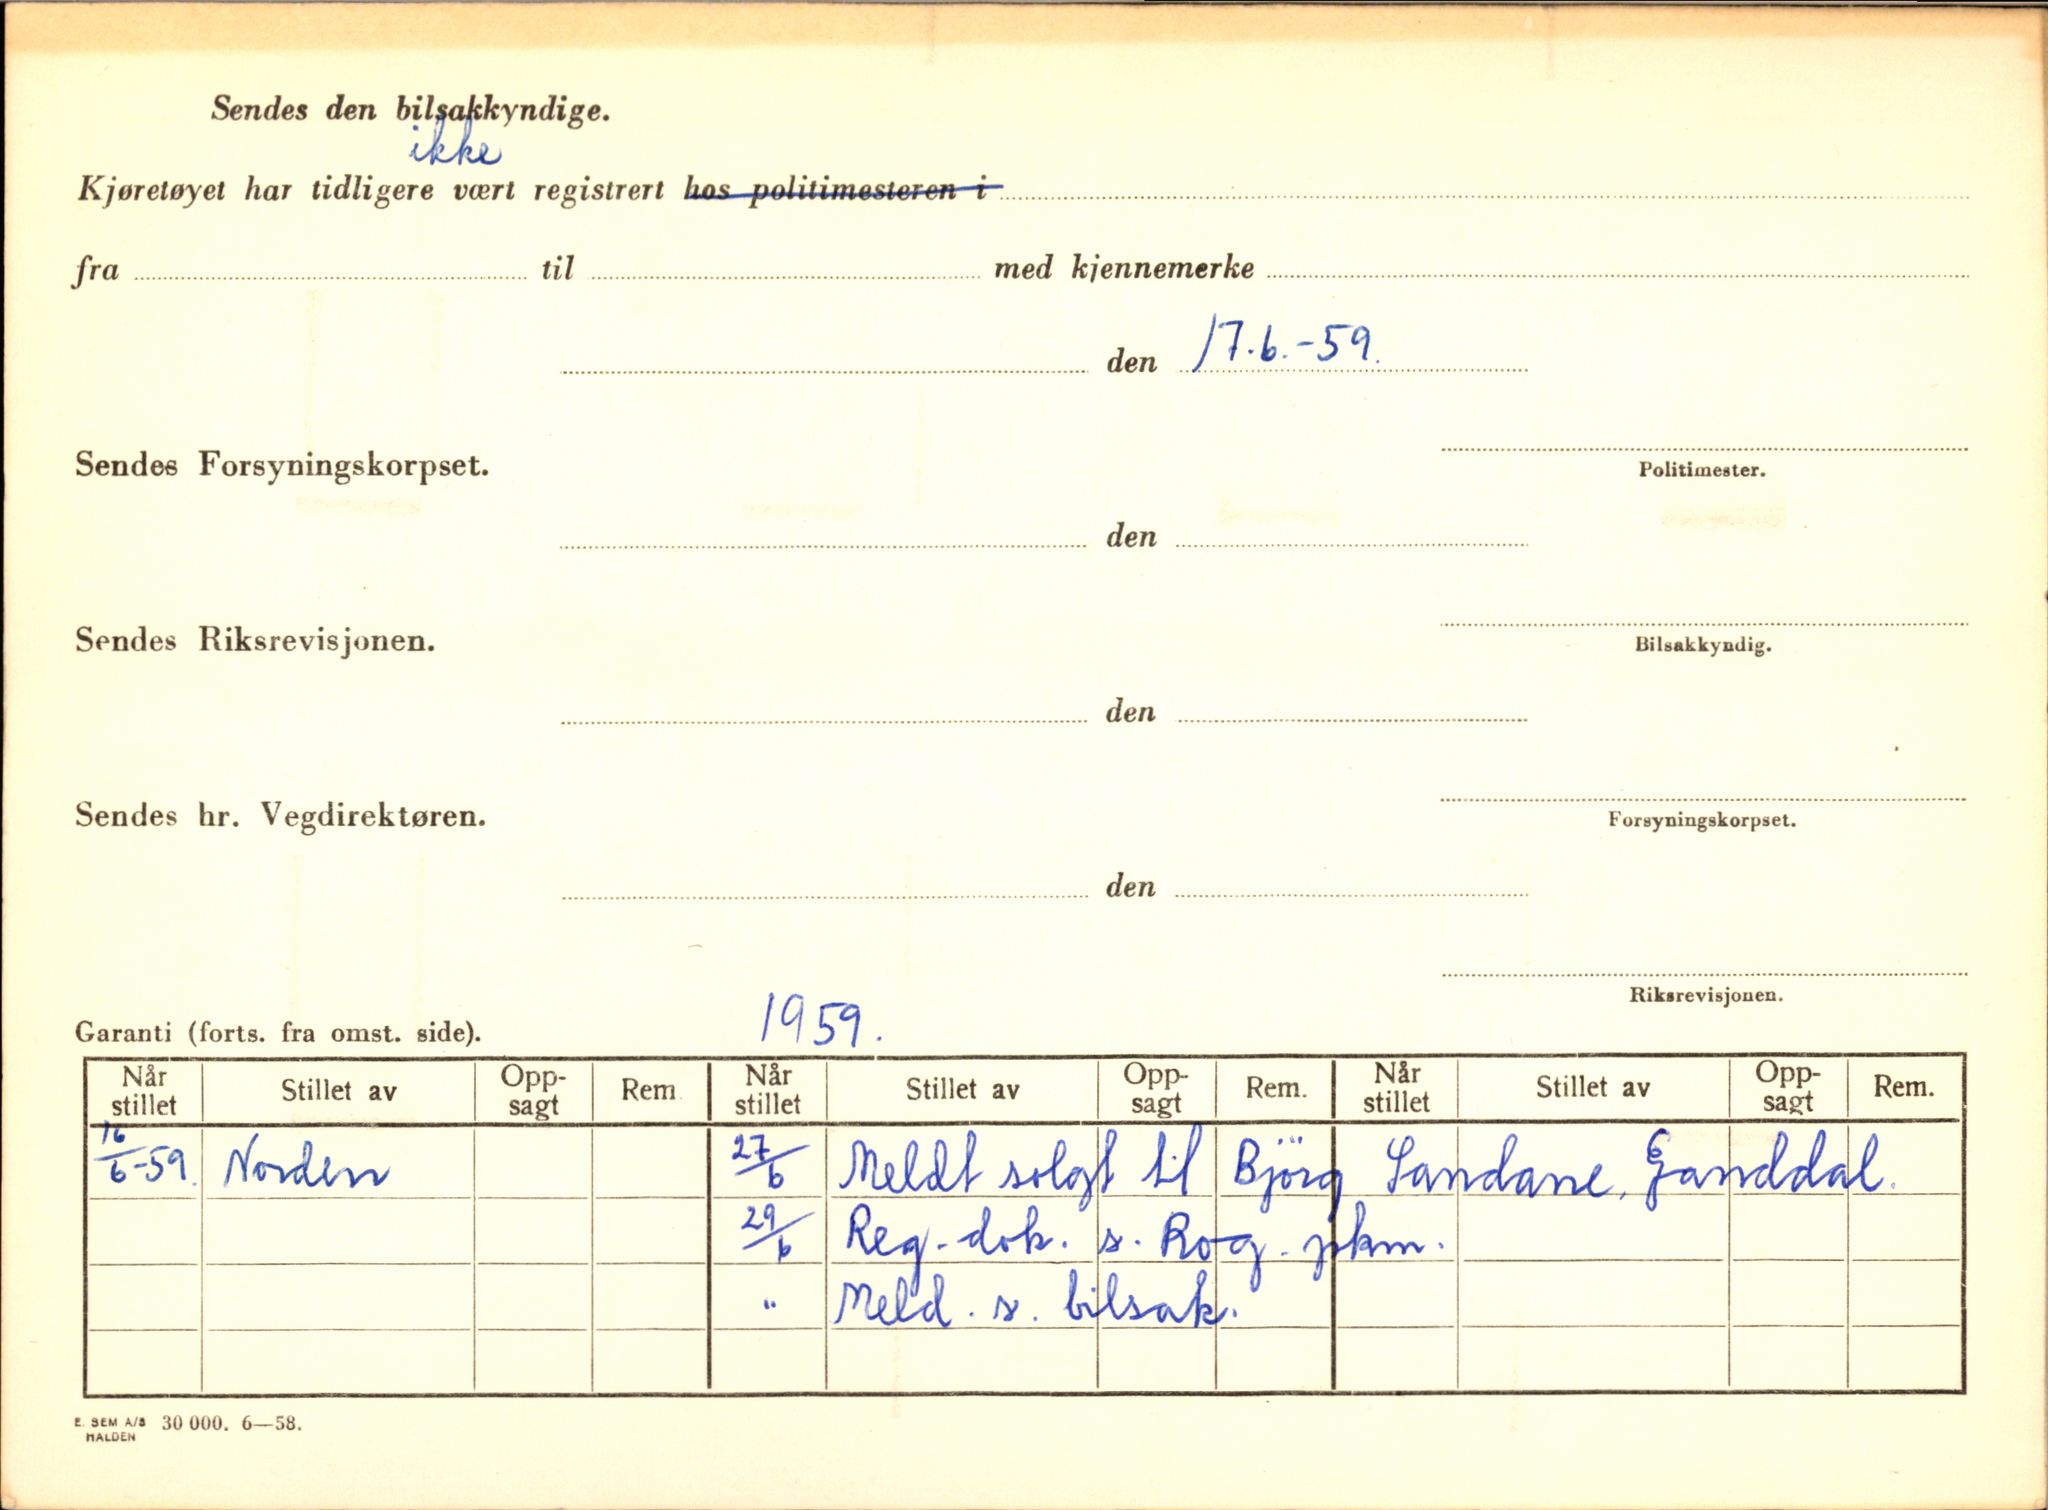 Sendes den bilsakkyndige.
ikke
Kjøretøyet har tidligere vært registrert hos politimesteren i
fra til med kjennemerke
den 17.6.-59.
Sendes Forsyningskorpset.
Politimester.
den
Sendes Riksrevisjonen.
Bilsakkyndig.
den
Sendes hr. Vegdirektøren.
Forsyningskorpset.
den
Riksrevisjonen.
Garanti (forts. fra omst. side). 1959.
Når stillet Stillet av Opp-sagt Rem Når stillet Stillet av Opp-sagt Rem. Når stillet Stillet av Opp-sagt Rem.
16/6-59. Norden 27/6 Meldt solgt til Björg Sandane, Ganddal.
29/6 Reg.dok. s. Rog. pkm.
" Meld. s. bilsak.
E. SEM A/S 30 000. 6—58.
HALDEN